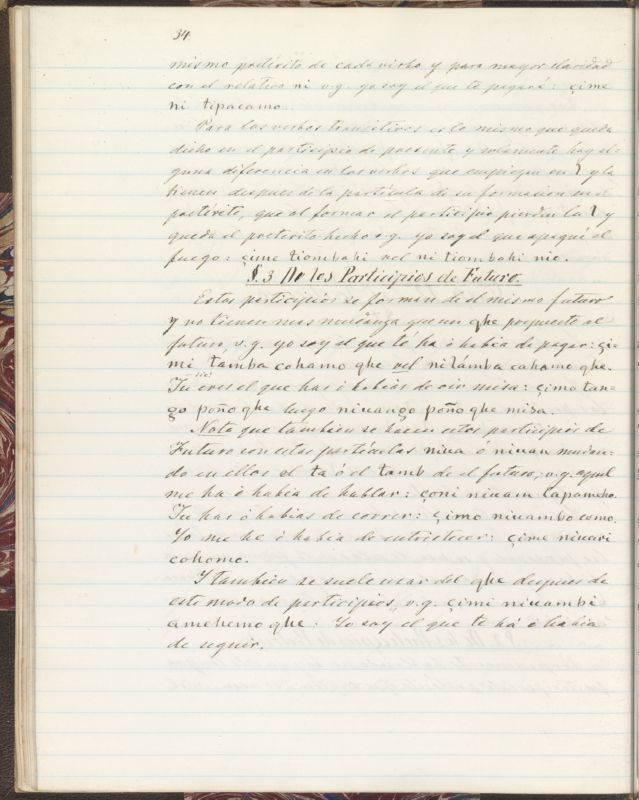 34.
mismo pretérito de cada verbo y para mayor claridad
con el relativo ni v.g. yo soy el que te pagaré: çime
ni tipacamo.
Para los verbos transitivos es lo mismo que queda
dicho en el participio de presente y solamente hay al-
guna diferencia en los verbos que empiezan en l y la
tienen despues de la partícula de su formacion en el
pretérito, que al formar el participio pierden la l y
queda el preterito hecho v.g. yo soy el que apagué el
fuego: çime tiombahi vel ni tiombahi nie.
§. 3 De los Participios de Futuro.
Estos participios se forman de el mismo futuro
y no tienen mas mudanza que un qhe pospuesto al
futuro, v.g. yo soy el que té ha ó habia de pagar: çi-
mi tamba cohamo qhe vel ni támba cahomo qhe.
Tu eres el que has ó habias de oir misa: çimo tan-
go poño qhe luego niuango poño qhe misa.
Nota que tambien se hacen estos participios de
Futuro con estas partículas niua ó niuan mudan-
do en ellos el ta ó el tamb de el futuro; v.g. aquel
me ha ó habia de hablar: çoni niuam capameho.
Tu has ó habias de correr: çimo niuambo como.
Yo me he ó habia de entristecer: çime niuari
cohomo.
Y tambien se suele usar del qhe despues de
este modo de participios, v.g. çimi niuambi
amehemo qhe: Yo soy el que te há ó habia
de seguir.